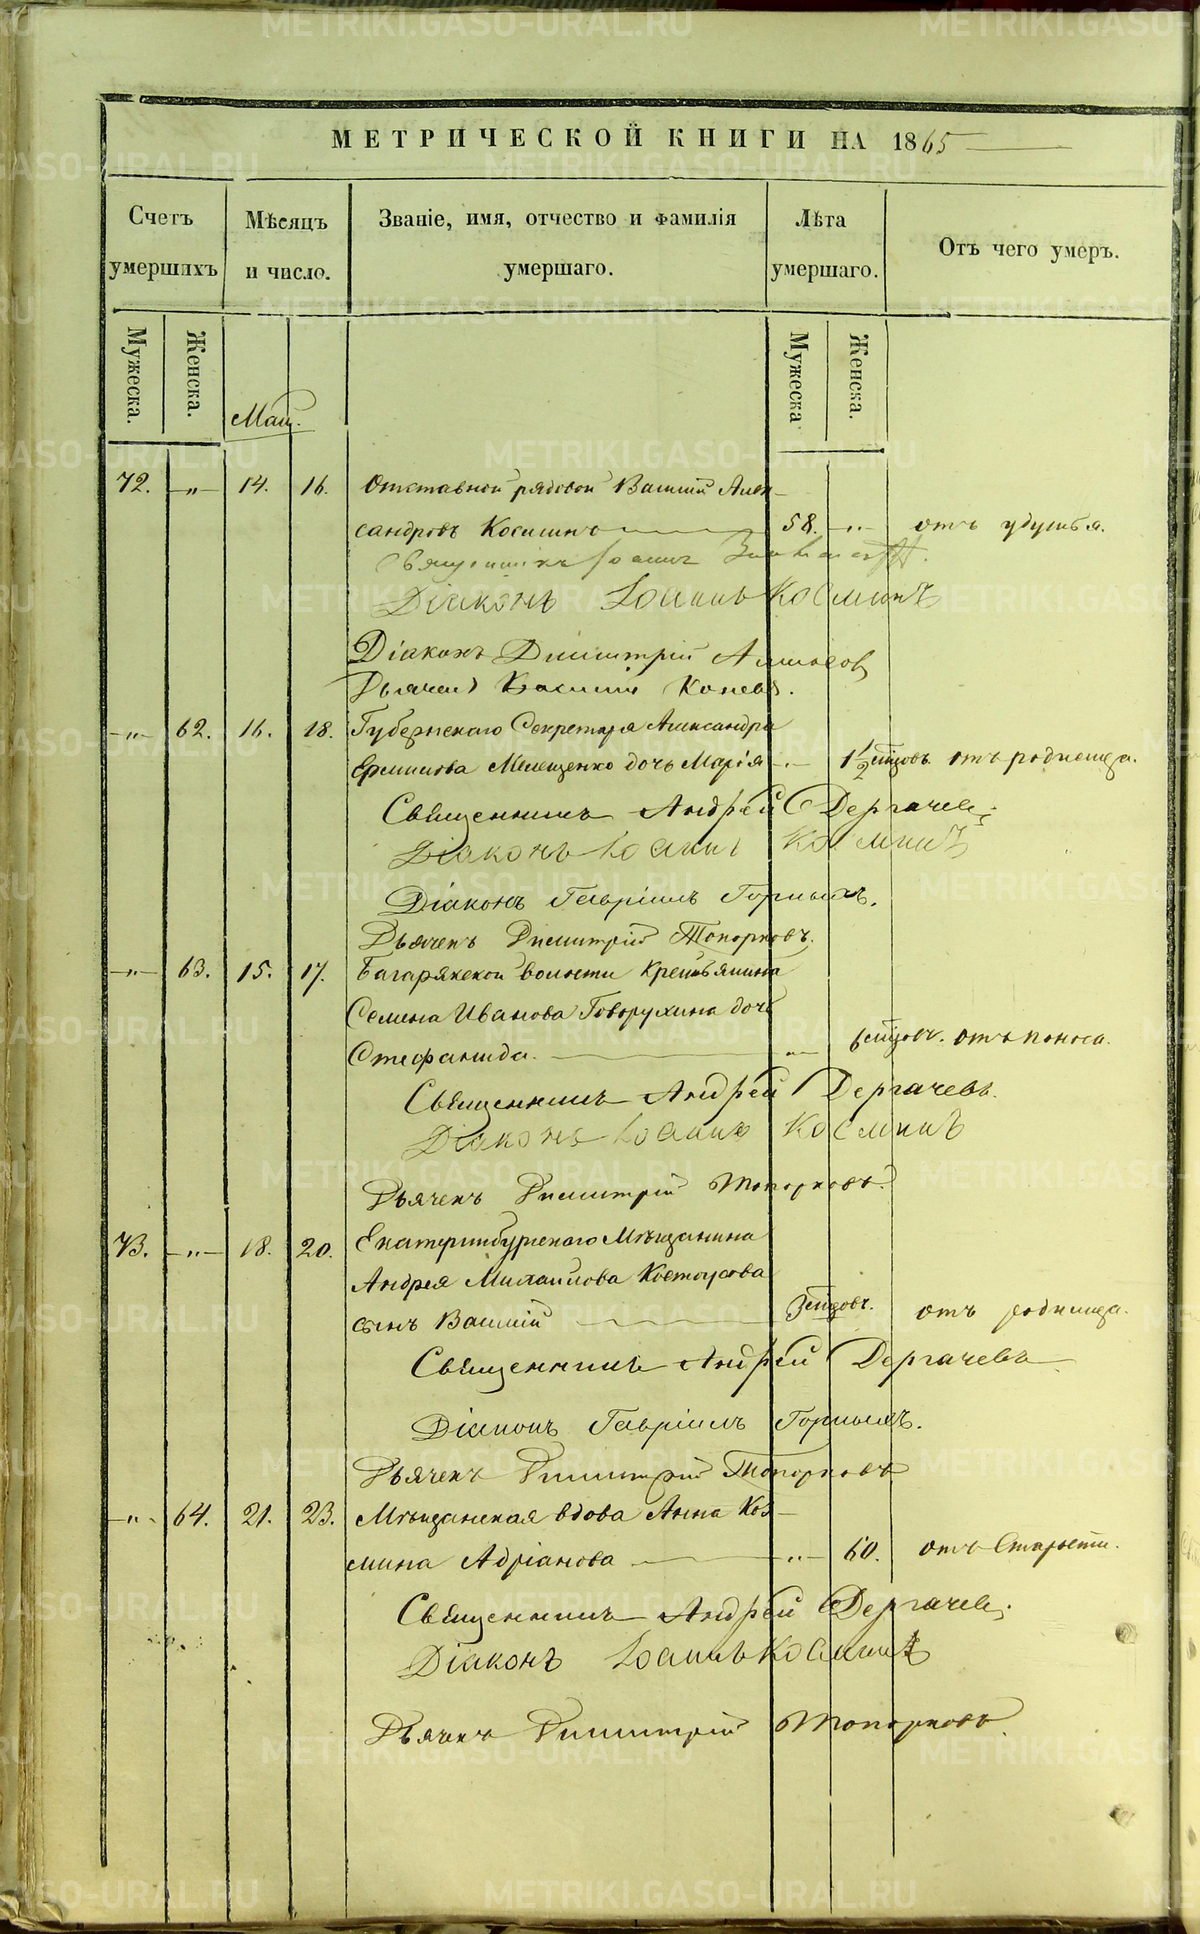 МЕТРИЧЕСКОЙ КНИГИ НА 1865
Счетъ умершихъ
Мѣсяцъ и число.
Званіе, имя, отчество и фамилія умершаго.
Лѣта умершаго.
Отъ чего умеръ.
Мужеска. Женска. Мужеска Женска.
Май.
72. „ 14. 16. Отставной рядовой Василій Алек-
сандровъ Косминъ 58. „ отъ удушья.
Священникъ Іоаннъ
Діаконъ Іоаннъ Косминъ
Діаконъ Димитрій
Дьячекъ Василій Коневъ.
„ 62. 16. 18. Губернскаго Секретаря Александра
Ермилова Мелещенко дочь Марія „ 1 1/2 мѣсцовъ отъ родимца.
Священникъ Андрей Дергачевъ
Діаконъ Іоаннъ Косминъ
Діаконъ Гавріилъ Горныхъ.
Дьячекъ Димитрій Топорковъ.
„ 63. 15. 17. Багарякской волости Крестьянина
Семена Иванова Говорухина дочь
Стефанида. „ 6 мѣсцовъ. отъ поноса.
Священникъ Андрей Дергачевъ.
Діаконъ Іоаннъ Косминъ
Дьячекъ Димитрій Топорковъ.
73. „ 18. 20. Екатеринбургскаго Мѣщанина
Андрея Михаилова Костоусова
сынъ Василій 3 мѣсцовъ. отъ родимца.
Священникъ Андрей Дергачевъ
Діаконъ Гавріилъ Горныхъ.
Дьячекъ Димитрій Топорковъ
„ 64. 21. 23. Мѣщанская вдова Анна Коз-
мина Адріанова „ 60. отъ Старости.
Священникъ Андрей Дергачевъ.
Діаконъ Іоаннъ Косминъ
Дьячекъ Димитрій Топорковъ
METRIKI.GASO-URAL.RU